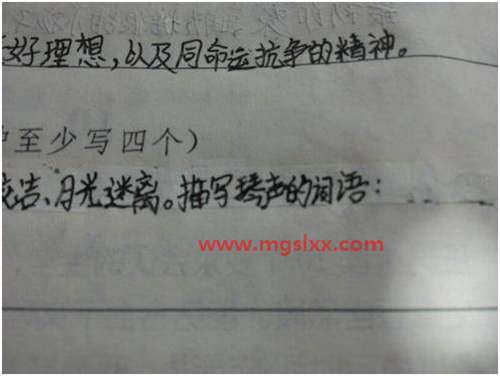 好理想，以及同命运抗争的精神。
至少写四个）
洁、月光迷离。描写琴声的词语：
www.mgslxx.com